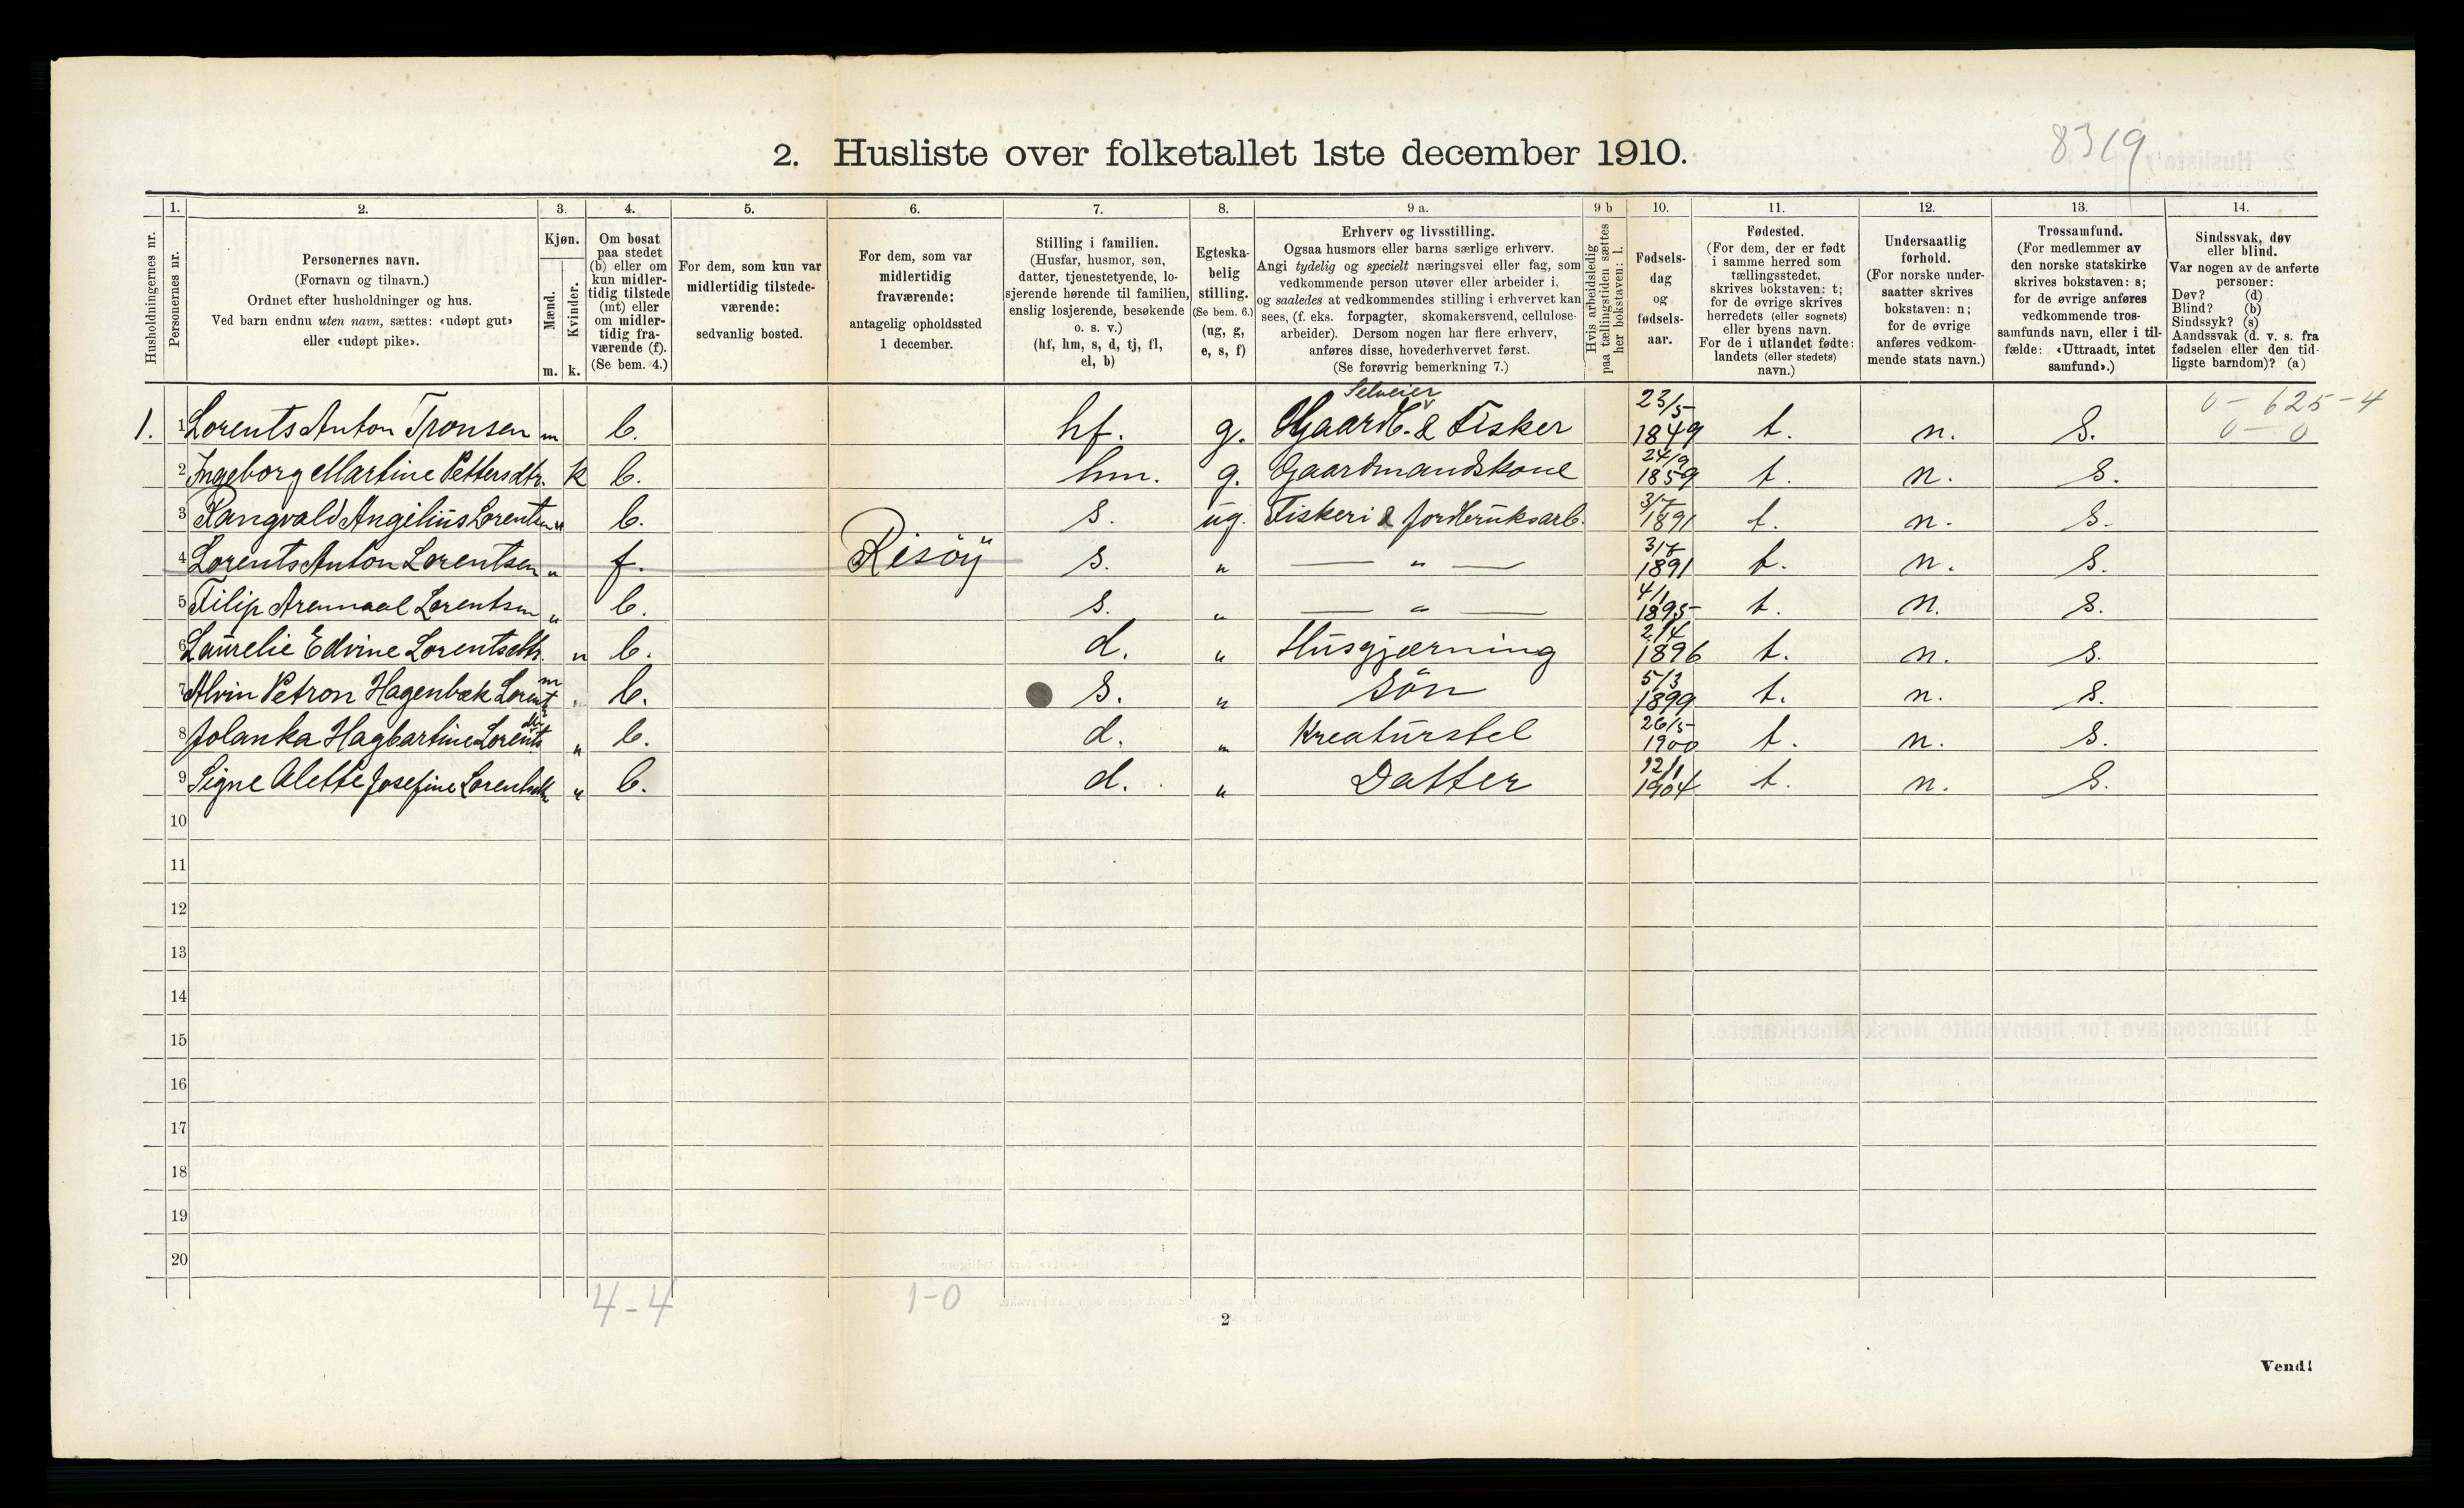 2. Husliste over folketallet 1ste december 1910.
83 19
1. 2. 3. 4. 5. 6. 7. 8. 9 a. 9 b 10. 11. 12. 13. 14.
Husholdningernes nr.
Personernes nr.
Personernes navn.
(Fornavn og tilnavn.)
Ordnet efter husholdninger og hus.
Ved barn endnu uten navn, sættes: «udøpt gut»
eller «udøpt pike».
Kjøn.
Mænd.
Kvinder.
m. k.
Om bosat
paa stedet
(b) eller om
kun midler-
tidig tilstede
(mt) eller
om midler-
tidig fra-
værende (f).
(Se bem. 4.)
For dem, som kun var
midlertidig tilstede-
værende:
sedvanlig bosted.
For dem, som var
midlertidig
fraværende:
antagelig opholdssted
1 december.
Stilling i familien.
(Husfar, husmor, søn,
datter, tjenestetyende, lo-
sjerende hørende til familien,
enslig losjerende, besøkende
o. s. v.)
(hf, hm, s, d, tj, fl,
el, b)
Egteska-
belig
stilling.
(Se bem. 6.)
(ug, g,
e, s, f)
Erhverv og livsstilling.
Ogsaa husmors eller barns særlige erhverv.
Angi tydelig og specielt næringsvei eller fag, som
vedkommende person utøver eller arbeider i,
og saaledes at vedkommendes stilling i erhvervet kan
sees, (f. eks. forpagter, skomakersvend, cellulose-
arbeider). Dersom nogen har flere erhverv,
anføres disse, hovederhvervet først.
(Se forøvrig bemerkning 7.)
Hvis arbeidsledig
paa tællingstiden sættes
her bokstaven: l.
Fødsels-
dag
og
fødsels-
aar.
Fødested.
(For dem, der er født
i samme herred som
tællingsstedet,
skrives bokstaven: t;
for de øvrige skrives
herredets (eller sognets)
eller byens navn.
For de i utlandet fødte:
landets (eller stedets)
navn.)
Undersaatlig
forhold.
(For norske under-
saatter skrives
bokstaven: n;
for de øvrige
anføres vedkom-
mende stats navn.)
Trossamfund.
(For medlemmer av
den norske statskirke
skrives bokstaven: s;
for de øvrige anføres
vedkommende tros-
samfunds navn, eller i til-
fælde: «Uttraadt, intet
samfund».)
Sindssvak, døv
eller blind.
Var nogen av de anførte
personer:
Døv? (d)
Blind? (b)
Sindssyk? (s)
Aandssvak (d. v. s. fra
fødselen eller den tid-
ligste barndom)? (a)
1. 1 Lorents Anton Tronsen m b. hf. g. Selveier Gaardb. & Fisker 23/5 1849 t. n. S. 0 - 625 - 4
0 - 0
2 Ingeborg Martine Pettersdtr. k b. hm. g. Gaardmandskone 24/9 1859 t. n. S.
3 Rangvald Angilius Lorentsen " b. s. ug. Fiskeri & Jordbruksarb. 3/7 1891 t. n. S.
4 Lorents Anton Lorentsen " f. Risöy s. " — " — 3/7 1891 t. n. S.
5 Filip Lorentsen " b. s. " — " — 4/1 1895 t. n. S.
6 Laurelie Edvine Lorentsdtr. " b. d. " Husgjærning 2/4 1896 t. n. S.
7 Alvin Petron Hagenbæk Lorents m " b. s. " Sön 5/3 1899 t. n. S.
8 Jolanka Hagbartine Lorentsdtr " b. d. " Kreaturstel 26/5 1900 t. n. S.
9 Signe Alette Josefine Lorentsdtr " b. d. " Datter 12/1 1904 t. n. S.
10
11
12
13
14
15
16
17
18
19
20
4 - 4 1 - 0
2
Vend!